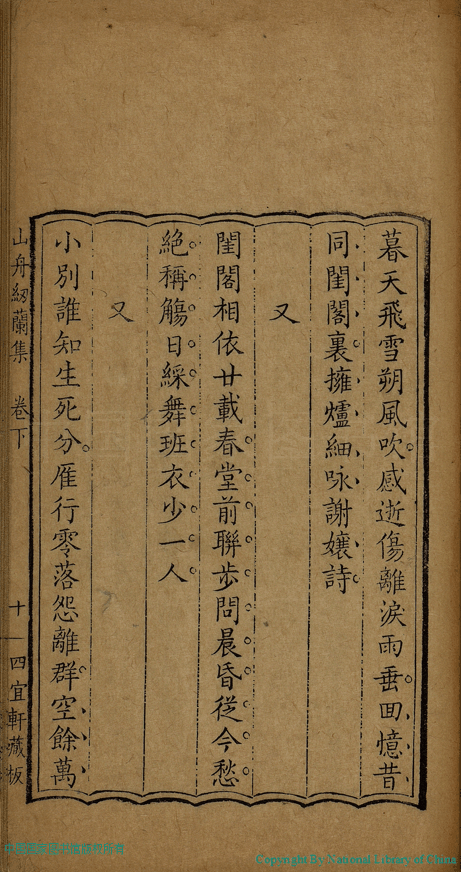 暮天飛雪朔風吹感逝傷離淚雨垂回憶昔
同閨閣裏擁爐細咏謝孃詩
又
閨閣相依廿載春堂前聯步問晨昏從今愁
絶稱觴日綵舞班衣少一人
又
小別誰知生死分雁行零落怨離群空餘萬
山舟紉蘭集 卷下 十 四宜軒藏板
Copyright By National Library of China